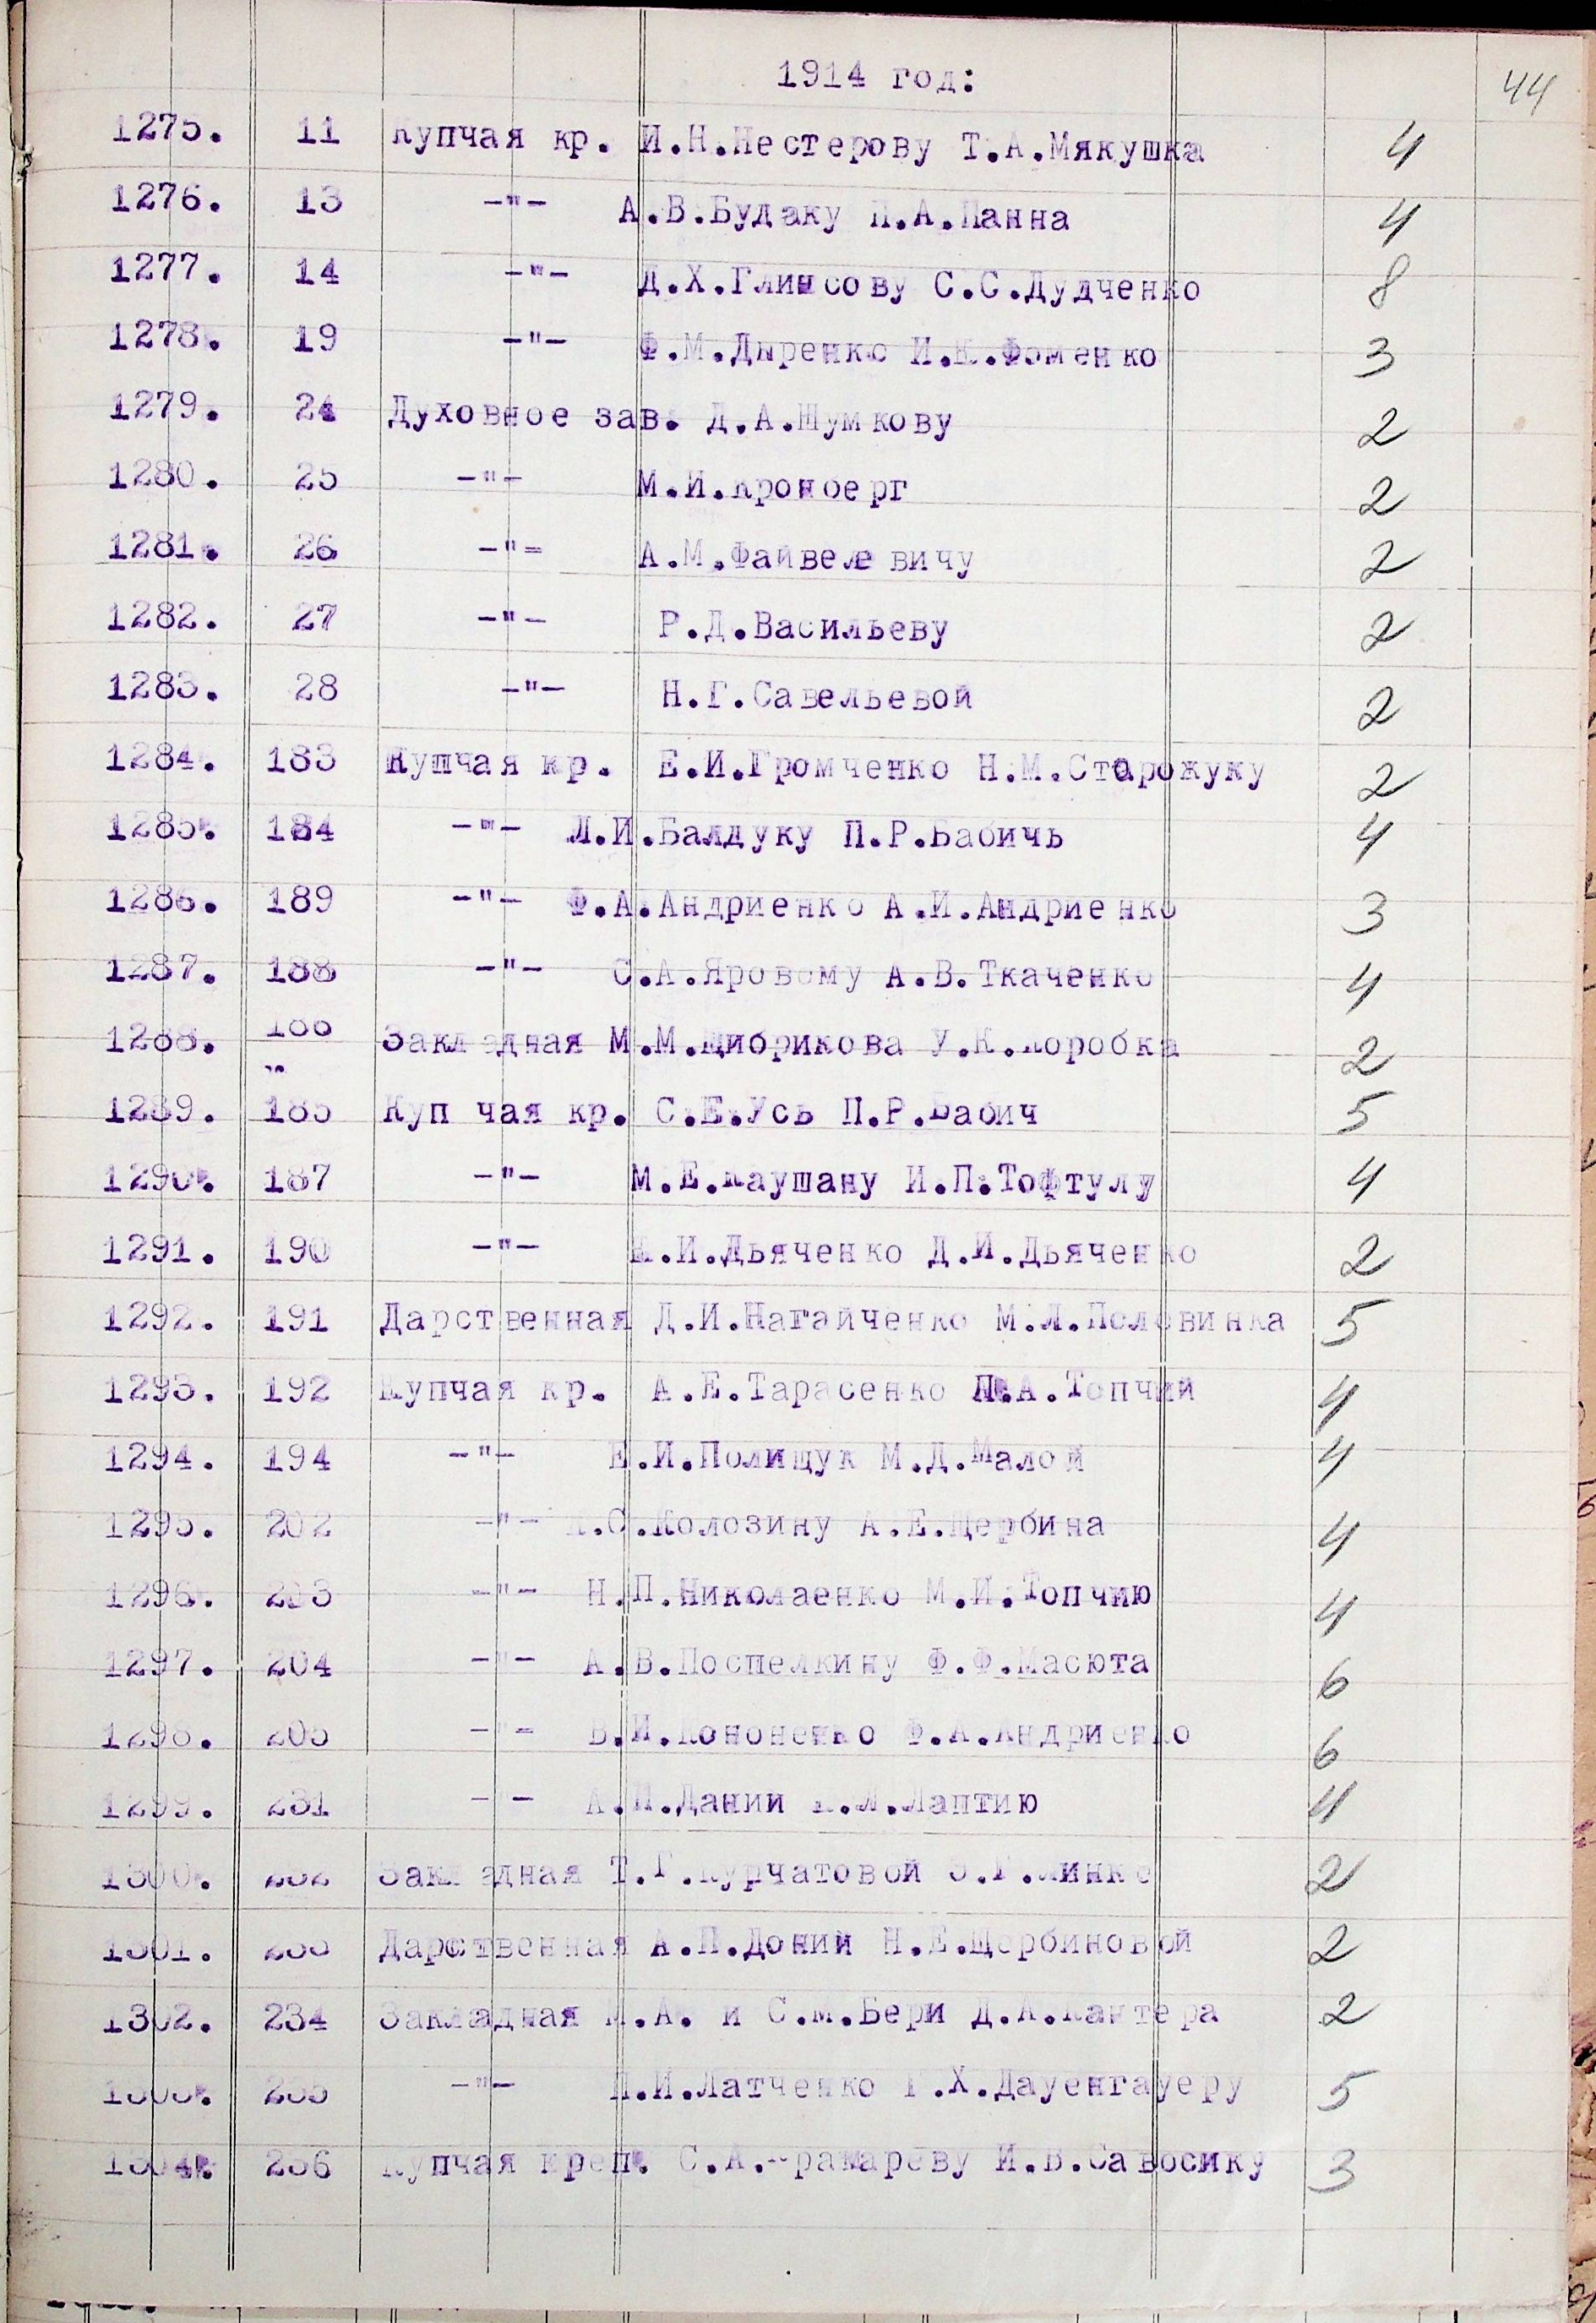 44
1914 год:
1275. 11 Купчая кр. И.Н.Нестерову Т.А.Мякушка 4
1276. 13 -"- А.В.Будаку П.А.Панна 4
1277. 14 -"- Д.Х. С.С.Дудченко 8
1278. 19 -"- Ф.М.Дыренко И.К.Фоменко 3
1279. 24 Духовное зав. Д.А.Шумкову 2
1280. 25 -"- М.И.Кронберг 2
1281. 26 -"- А.М.Файвелевичу 2
1282. 27 -"- Р.Д.Васильеву 2
1283. 28 -"- Н.Г.Савельевой 2
1284. 183 Купчая кр. Е.И.Громченко Н.М.Старожуку 2
1285. 184 -"- Л.И.Балдуку П.Р.Бабичь 4
1286. 189 -"- Ф.А.Андриенко А.И.Андриенко 3
1287. 188 -"- С.А.Яровому А.В.Ткаченко 4
1288. 186 Закладная М.М.Щибрикова У.К.Коробка 2
1289. 185 Куп чая кр. С.Е.Усь П.Р.Бабич 5
1290. 187 -"- М.Е.Каушану И.П.Тофтулу 4
1291. 190 -"- И.Дьяченко Д.И.Дьяченко 2
1292. 191 Дарственная Д.И.Нагайченко М.Л.Половинка 5
1293. 192 Купчая кр. А.Е.Тарасенко П.А.Топчий 4
1294. 194 -"- Е.И.Полищук М.Д.Малой 4
1295. 202 -"- С.Колозину А.Е.Щербина 4
1296. 203 -"- Н.П.Николаенко М.И.Топчию 4
1297. 204 -"- А.В.Поспелкину Ф.Ф.Масюта 6
1298. 205 -"- В.И.Кононенко Ф.А.Андриенко 6
1299. 231 - - А.П.Даний Лаптию 4
1300. 232 Закладная Т.Г.Курчатовой Линке 2
1301. 233 Дарственная А.П.Доний Н.Е.Щербиновой 2
1302. 234 Закладная А. и С.М.Бери Д.А.Кантера 2
1303. 235 -"- И.Латченко Г.Х.Дауенгауеру 5
1304. 236 Купчая креп. С.А.Крамареву И.В.Савосику 3